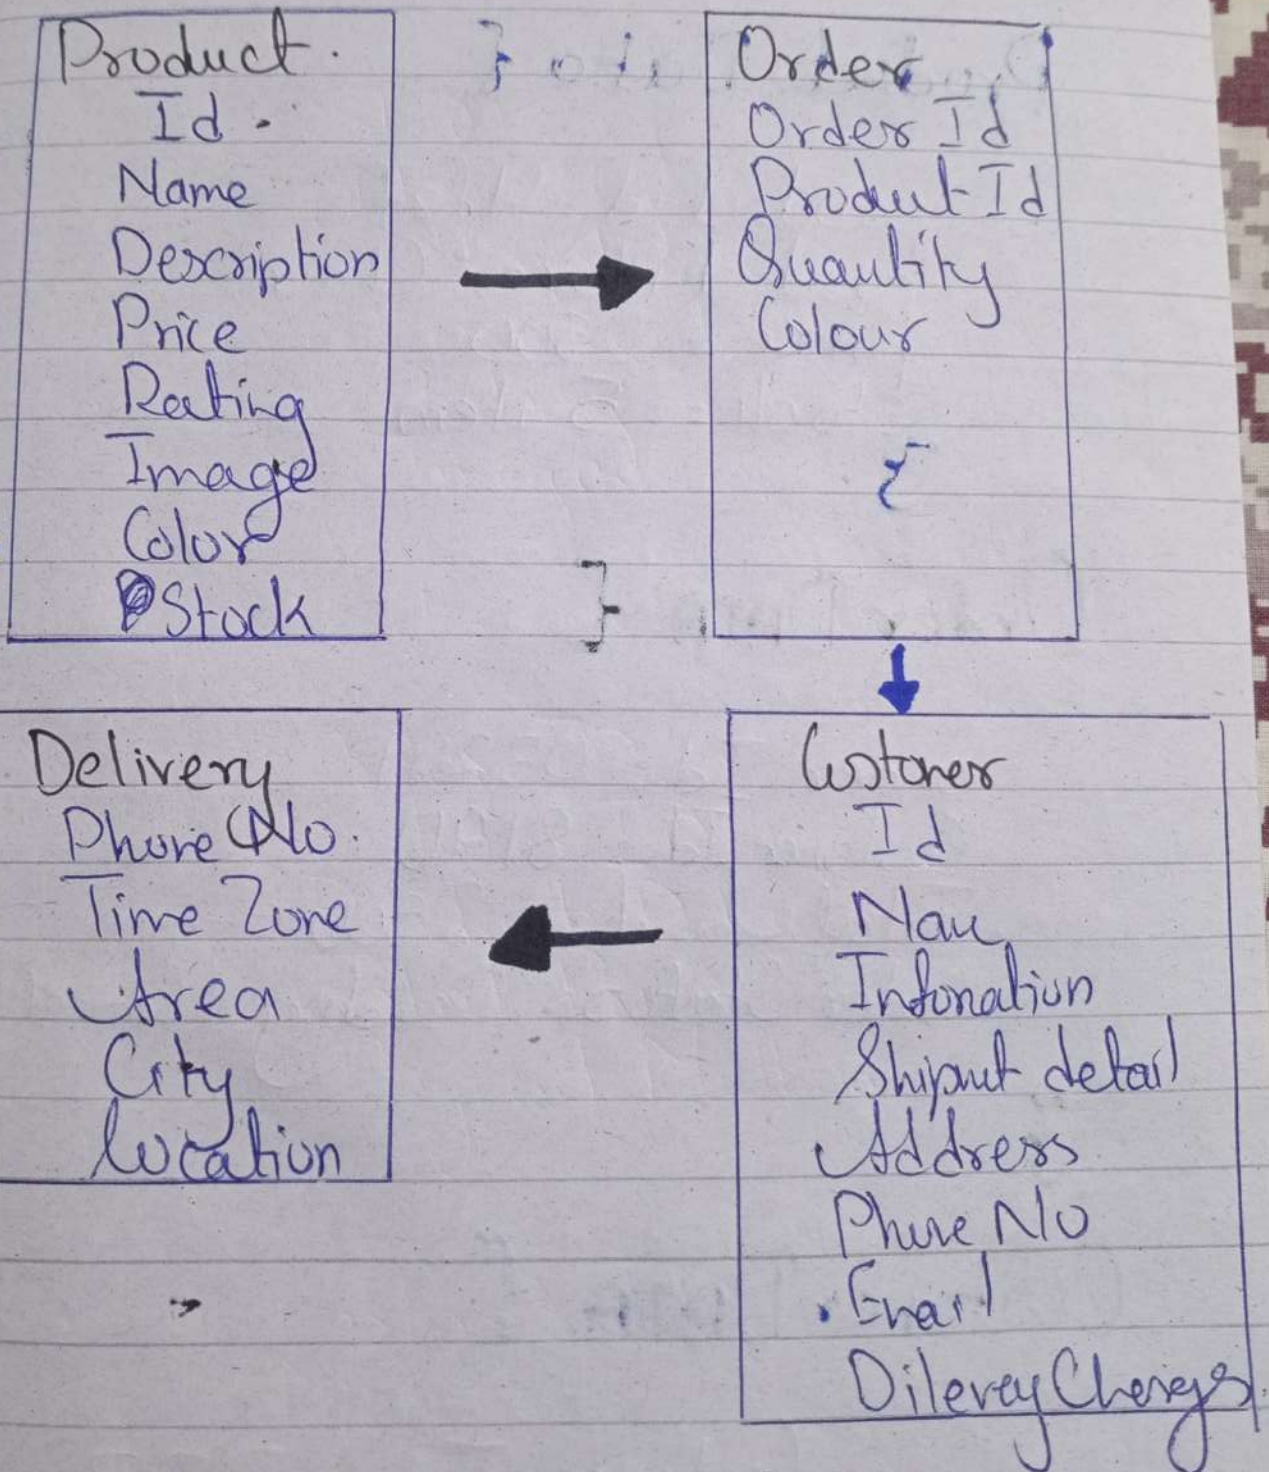 Product.
Id.
Name
Description
Price
Rating
Image
Color
Stock
Order
Order Id
Product Id
Quantity
Colour
Delivery
Phone No.
Time Zone
Area
City
Location
Customer
Id
Nam
Infonation
Shipmt detail
Address
Phone No
Email
Dilevey Cherges